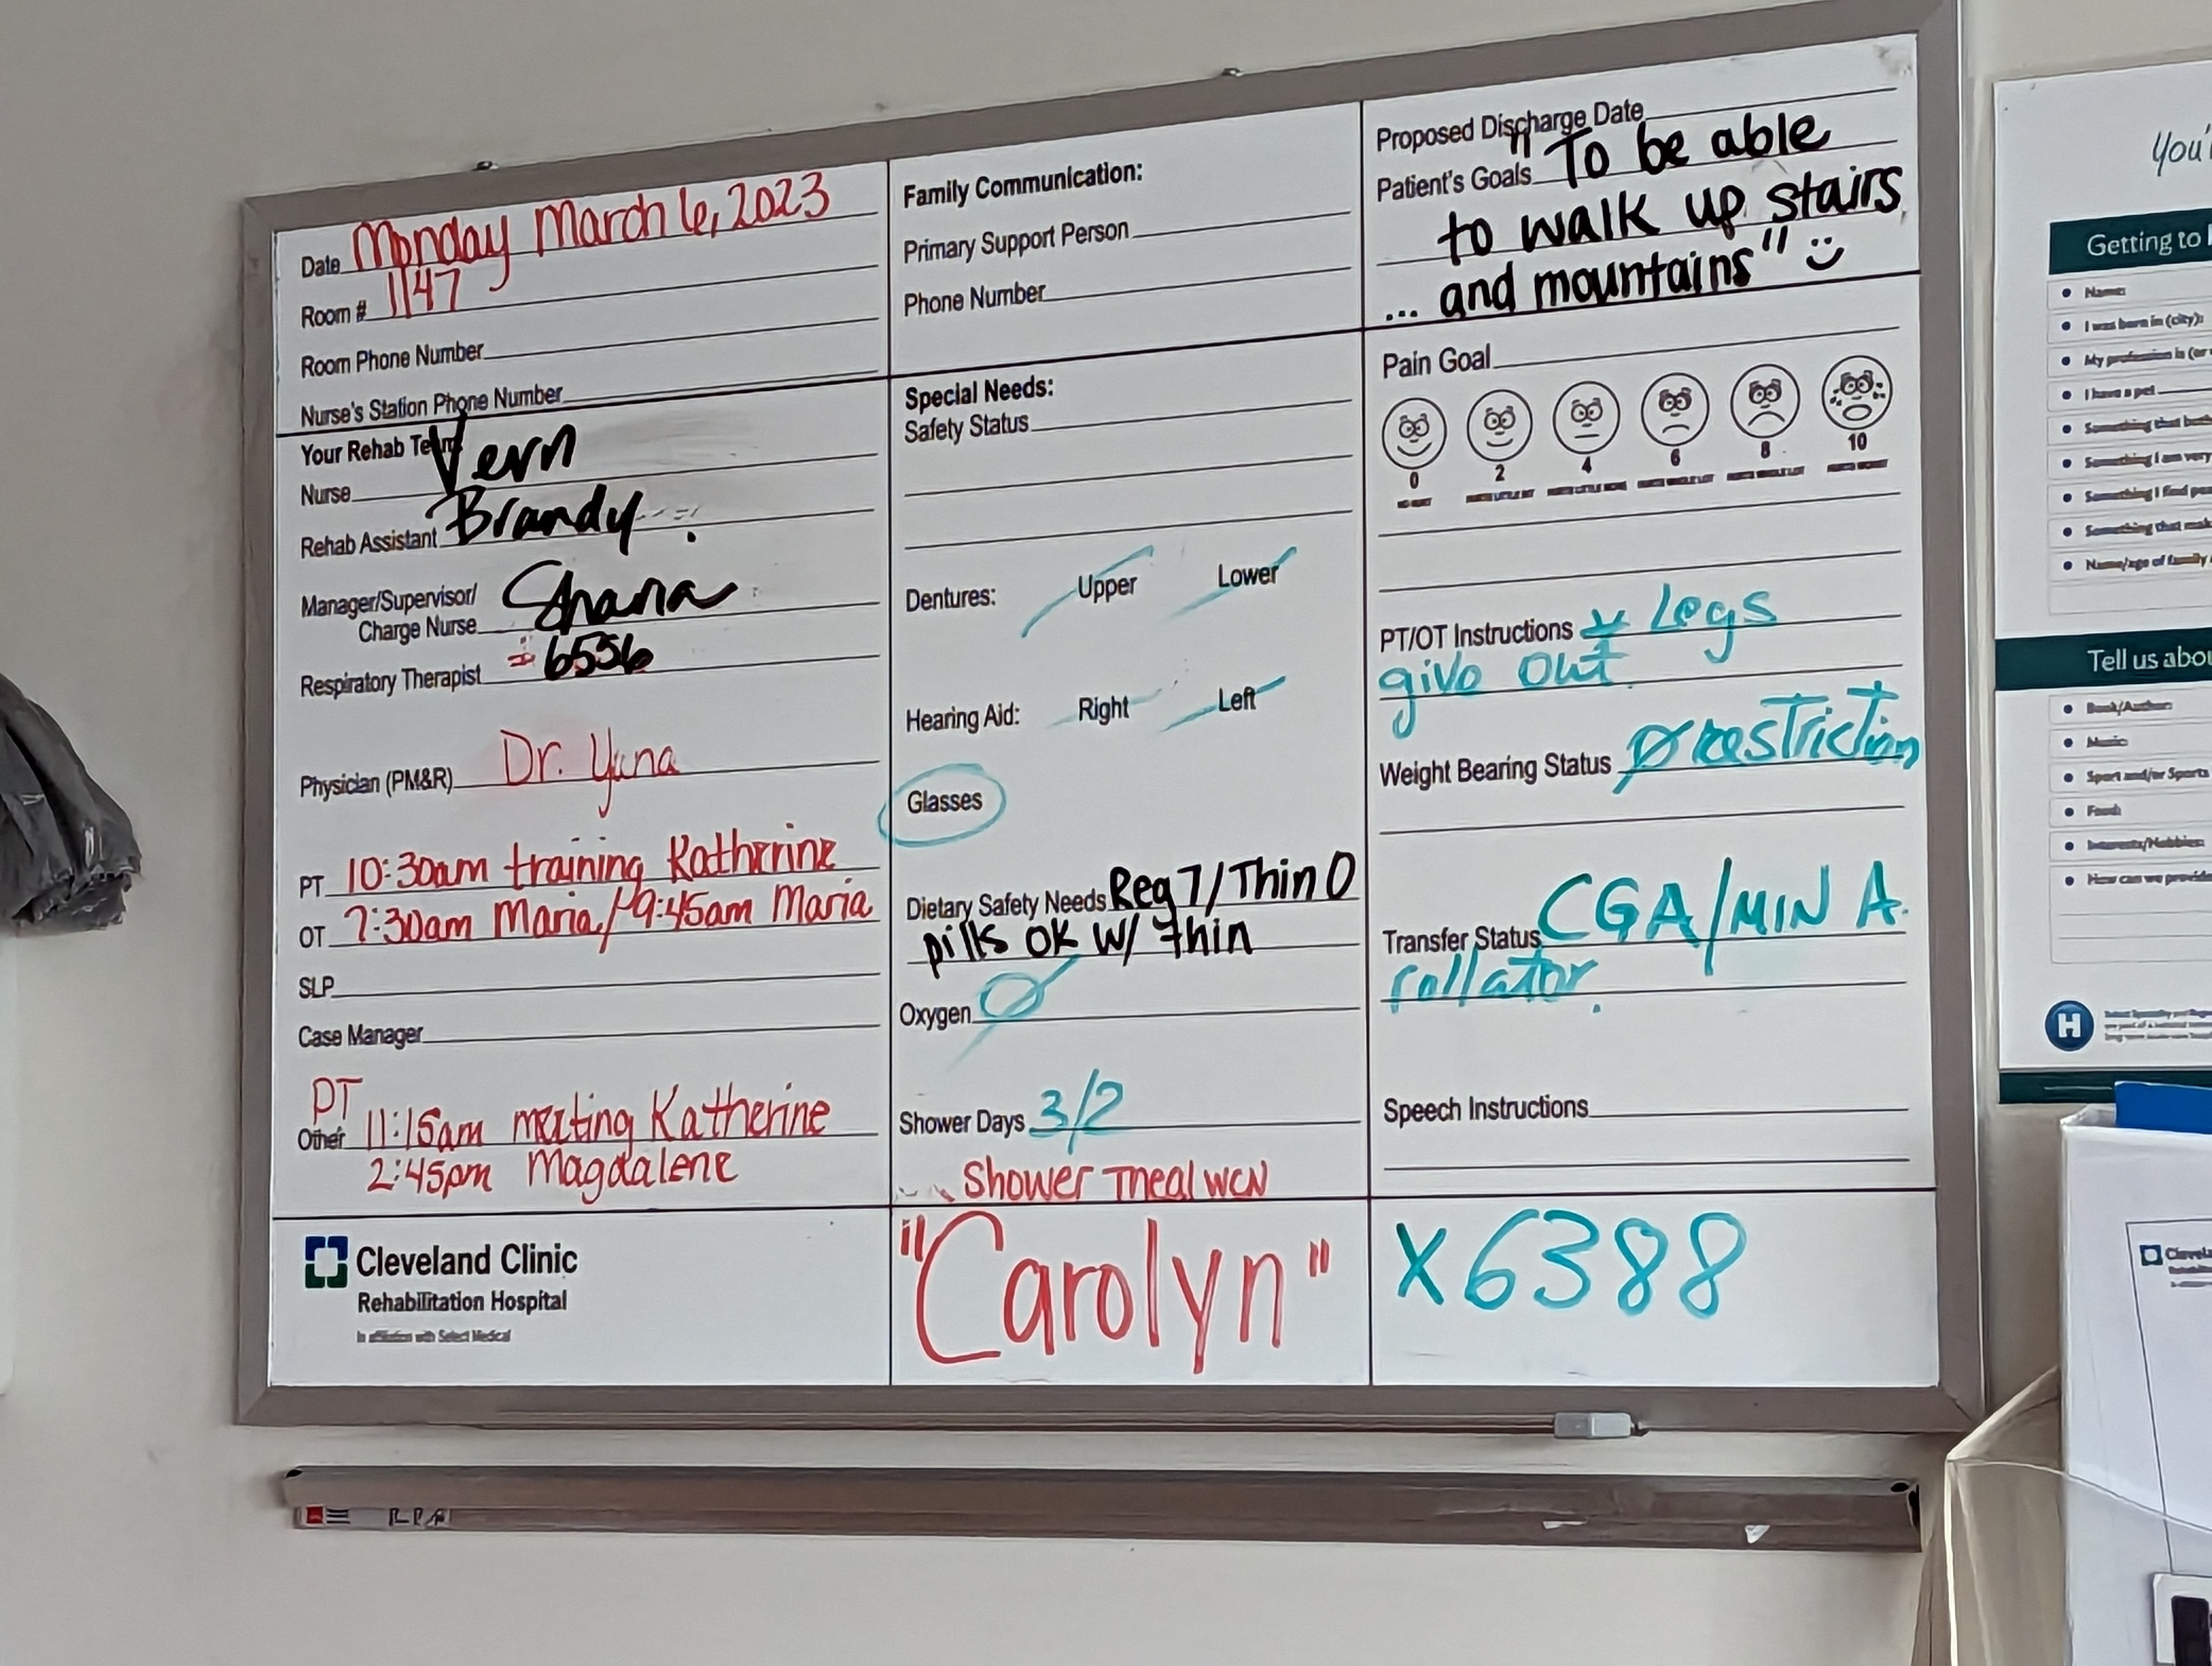 Date Monday March 6, 2023
Room # 1147
Room Phone Number
Nurse's Station Phone Number
Your Rehab Team
Nurse Vern
Rehab Assistant Brandy
Manager/Supervisor/
Charge Nurse Shana
Respiratory Therapist 6556
Physician (PM&R) Dr. Yuna
PT 10:30am training Katherine
OT 7:30am Maria / 9:45am Maria
SLP
Case Manager
PT
Other 11:15am meeting Katherine
2:45pm Magdalene
Cleveland Clinic
Rehabilitation Hospital
In affiliation with Select Medical
Family Communication:
Primary Support Person
Phone Number
Special Needs:
Safety Status
Dentures: Upper Lower
Hearing Aid: Right Left
Glasses
Dietary Safety Needs Reg 7/Thin 0
pills ok w/ thin
Oxygen Ø
Shower Days 3/2
Shower
"Carolyn"
Proposed Discharge Date
Patient's Goals "To be able
to walk up stairs
... and mountains"
Pain Goal
0 2 4 6 8 10
PT/OT Instructions Legs
give out
Weight Bearing Status Ø restriction
Transfer Status CGA/MIN A.
rollator.
Speech Instructions
x6388
You'
Getting to
Name:
I was born in (city):
My profession is (or
I have a pet
Something that
I am very
Something I find
Something that
Name/age of family
Tell us abou
Book/Author:
Music:
Sport and/or Sports
Food:
Interests/Hobbies:
How can we provide
H